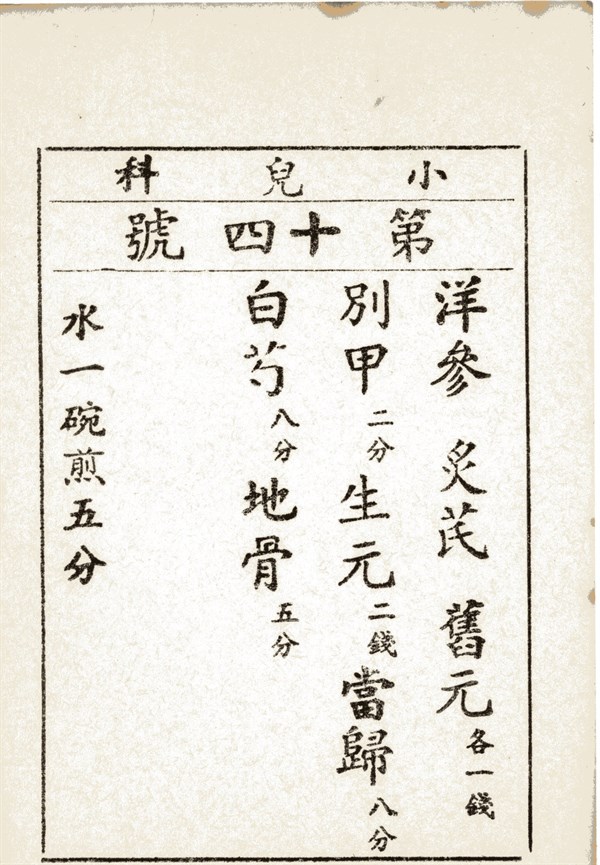 小兒科
第十四號
洋參 炙芪 舊元各一錢
別甲二分生元二錢當歸八分
白芍八分地骨五分
水一碗煎五分